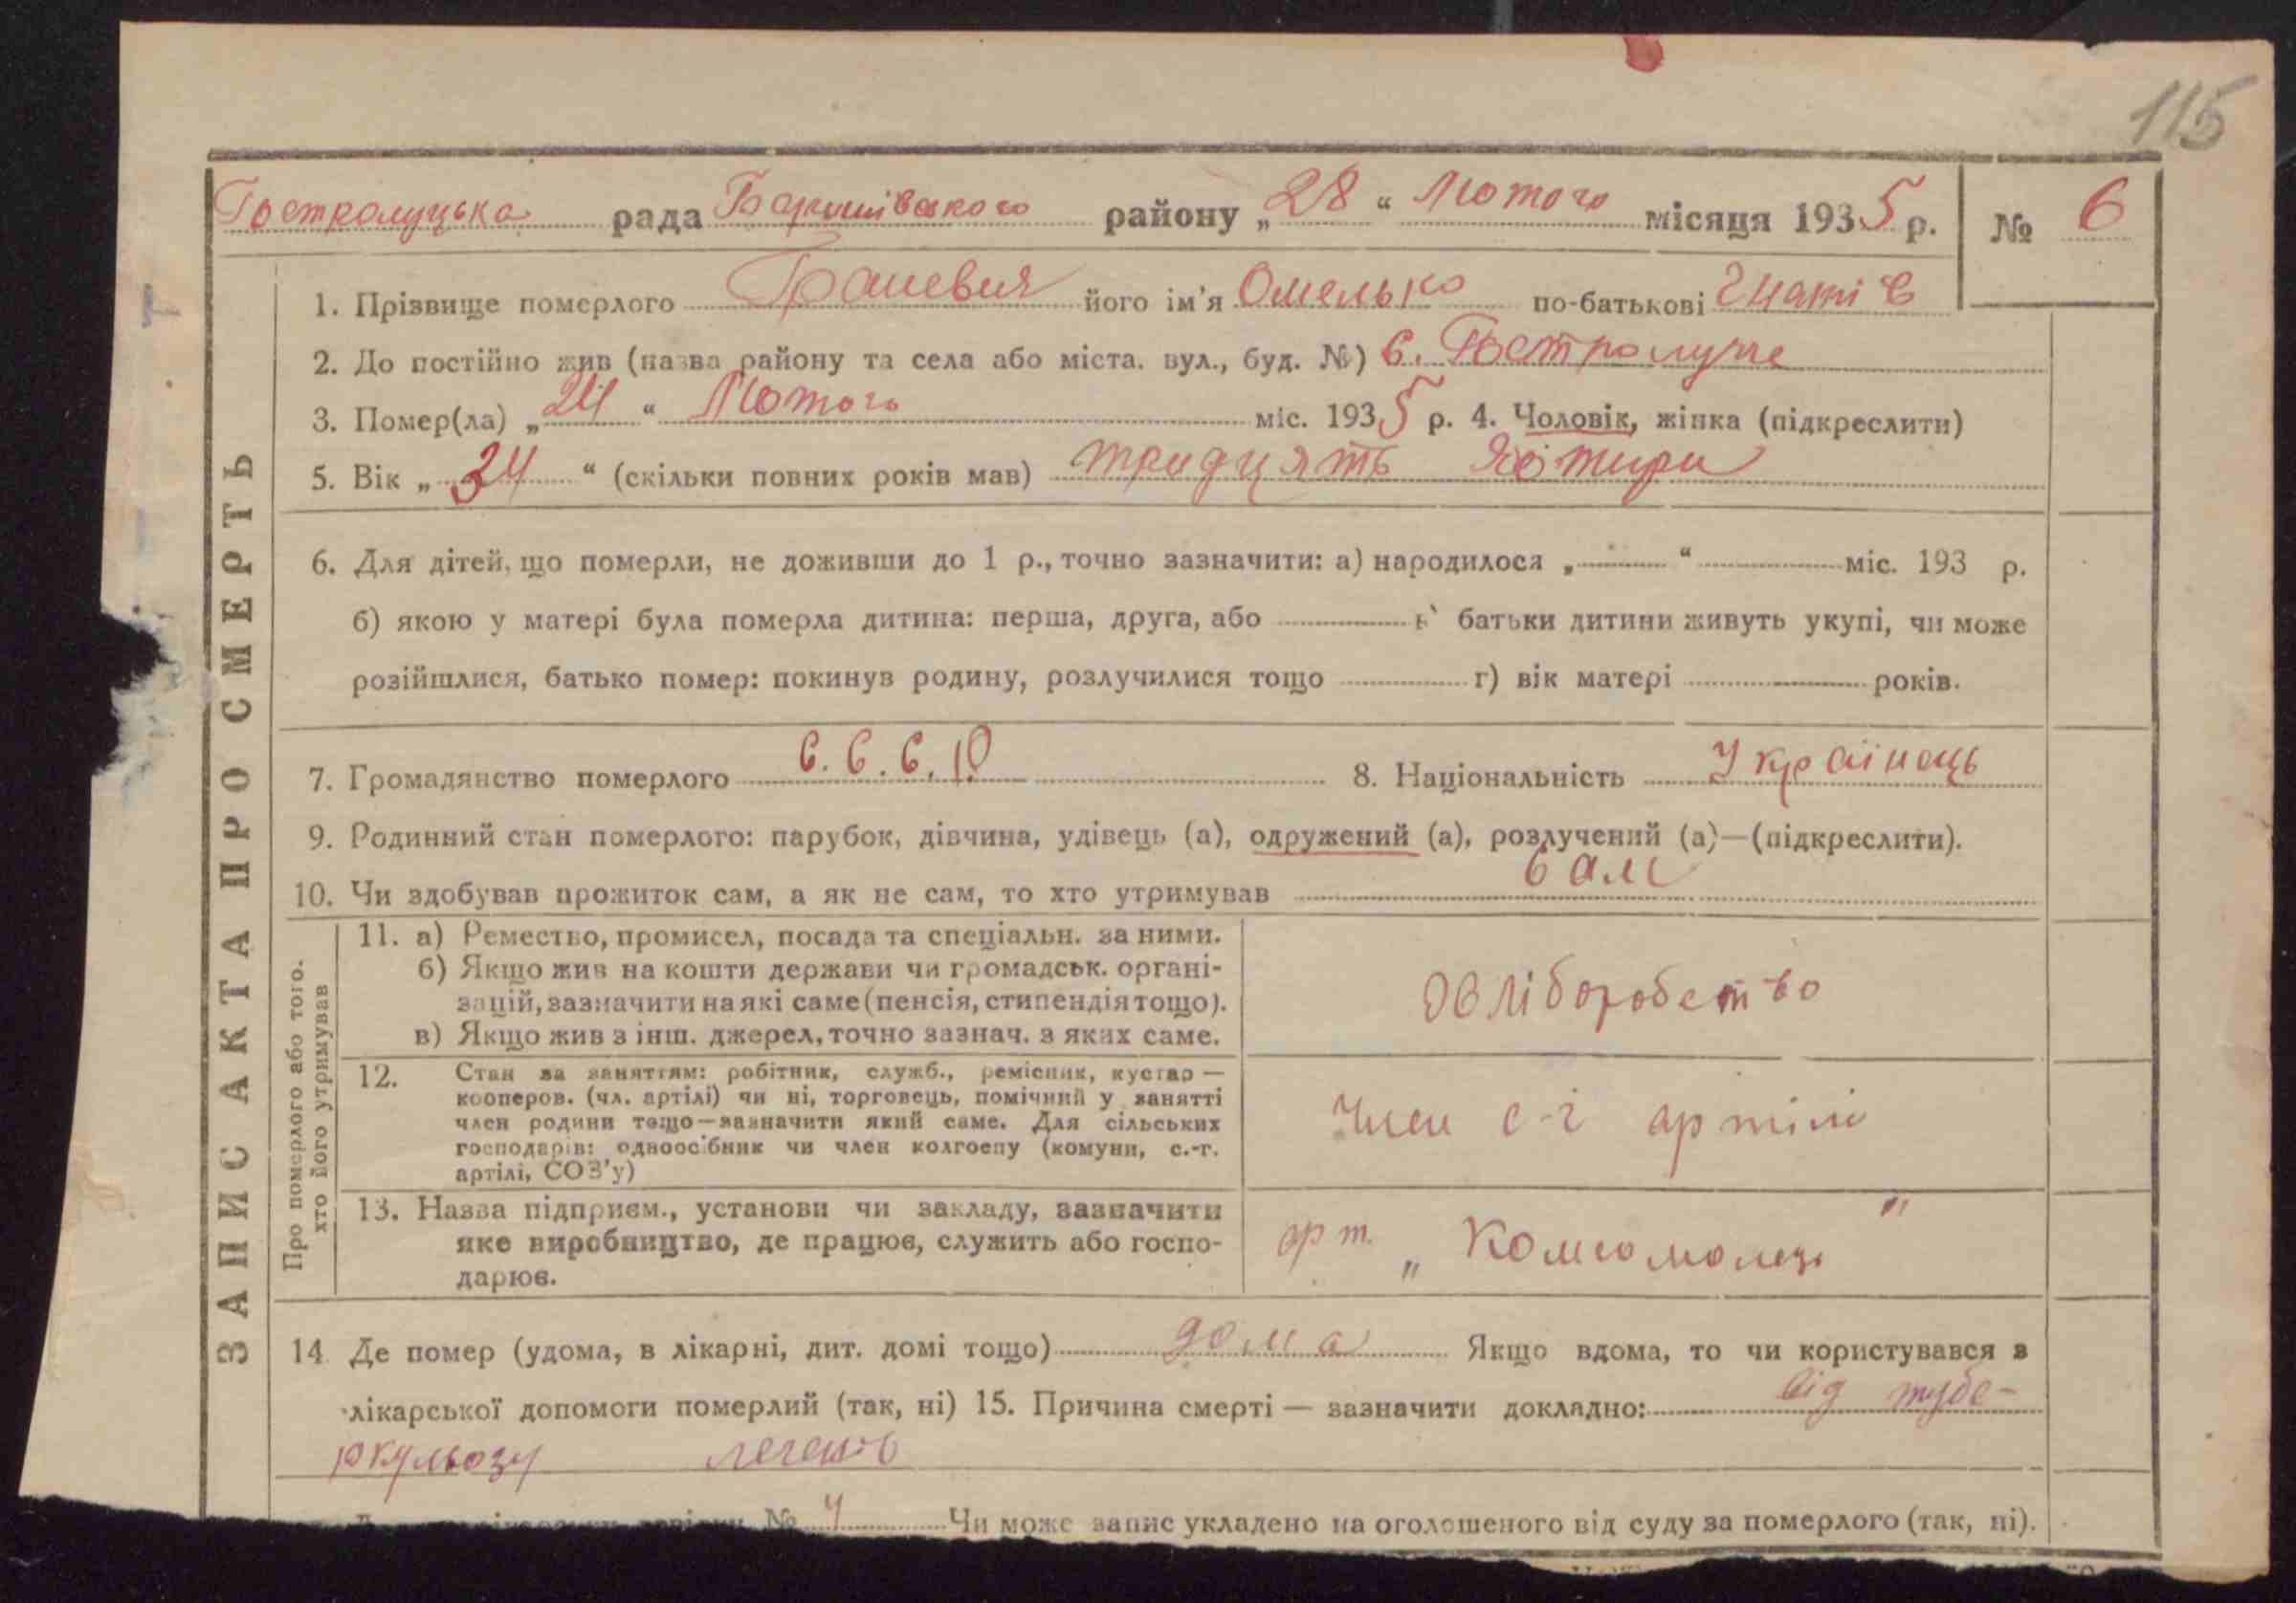 115
Гостролуцька рада Баришівського району „28“ Лютого місяця 1935 р. № 6
ЗАПИС АКТА ПРО СМЕРТЬ
1. Прізвище померлого його ім'я Омелько по-батькові Гнатів
2. До постійно жив (назва району та села або міста. вул., буд. №) С. Гостролуччє
3. Помер(ла) „24“ Лютого міс. 1935 р. 4. Чоловік, жінка (підкреслити)
5. Вік „34“ (скільки повних років мав) тридцять чотири
6. Для дітей, що померли, не доживши до 1 р., точно зазначити: а) народилося „ “ міс. 193 р.
б) якою у матері була померла дитина: перша, друга, або в) батьки дитини живуть укупі, чи може
розійшлися, батько помер: покинув родину, розлучилися тощо г) вік матері років.
7. Громадянство померлого С.С.С.Р 8. Національність Українець
9. Родинний стан померлого: парубок, дівчина, удівець (а), одружений (а), розлучений (а)—(підкреслити).
10. Чи здобував прожиток сам, а як не сам, то хто утримував Сам
Про померлого або того.
хто його утримував
11. а) Ремество, промисел, посада та спеціальн. за ними.
б) Якщо жив на кошти держави чи громадськ. органі-
зацій, зазначити на які саме (пенсія, стипендія тощо).
в) Якщо жив з інш. джерел, точно зазнач. з яких саме.
Хліборобство
12. Стан за заняттям: робітник, служб., ремісник, кустар —
кооперов. (чл. артілі) чи ні, торговець, помічний у занятті
член родини тощо—зазначити який саме. Для сільських
господарів: одноосібник чи член колгоспу (комуни, с.-г.
артілі, СОЗ'у)
Член с-г артілі
13. Назва підприєм., установи чи закладу, зазначити
яке виробництво, де працює, служить або госпо-
дарює.
арт. „Комсомолець"
14 Де помер (удома, в лікарні, дит. домі тощо) дома Якщо вдома, то чи користувався з
лікарської допомоги померлий (так, ні) 15. Причина смерті — зазначити докладно: від тубе-
ркульозу легень
№ 4 Чи може запис укладено на оголошеного від суду за померлого (так, ні).